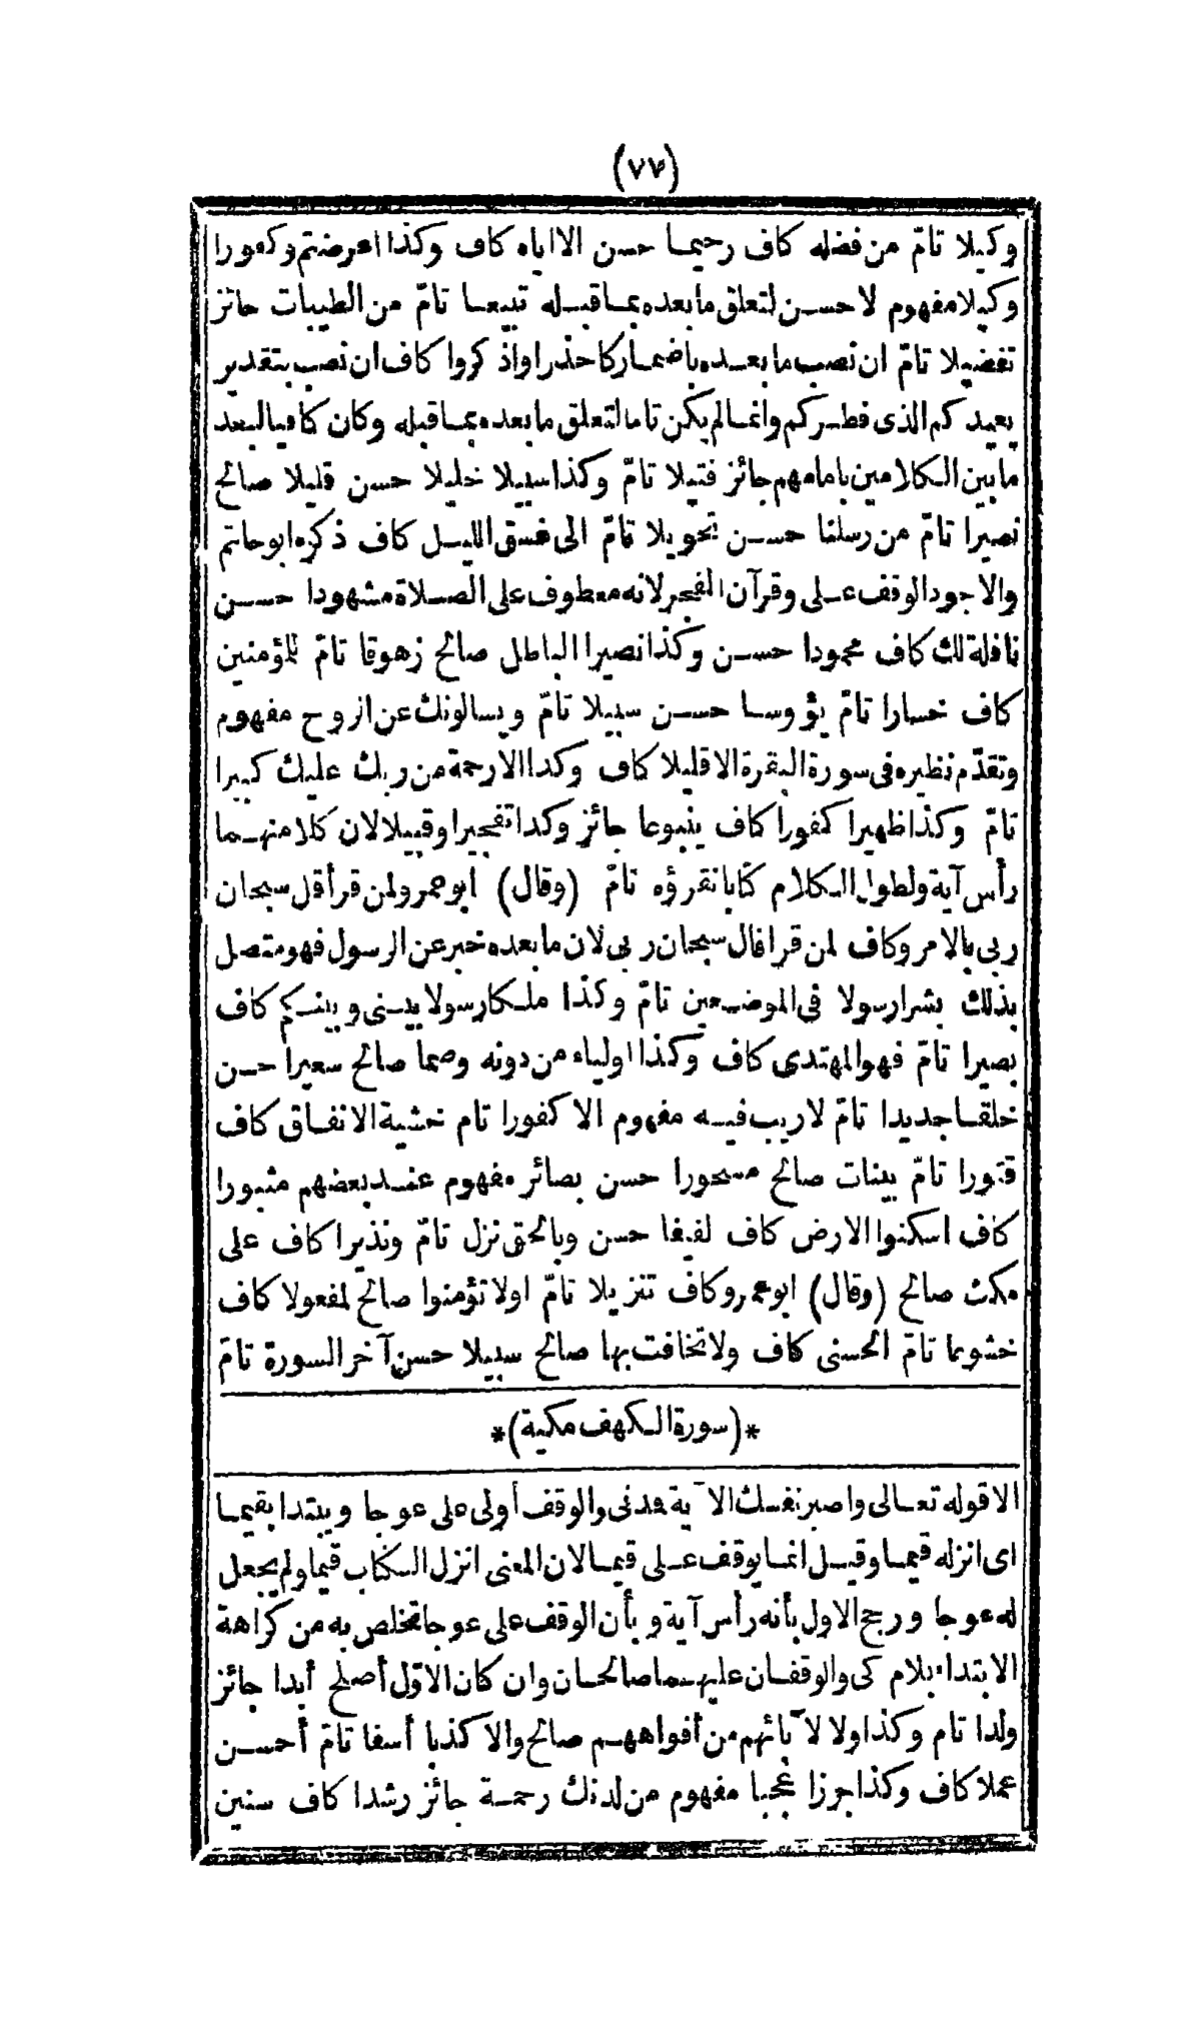 (٧٧)
وكيلا تامّ من فضله كاف رحيما حسن الا اياه كاف وكذا اعرضتم وكفورا
وكيلا مفهوم لا حسن لتعلق ما بعده بما قبله تبيعا تامّ من الطيبات جائز
تفضيلا تامّ ان نصب ما بعده باضمار كاحذرا واذكروا كاف ان نصب بتقدير
يعيدكم الذى فطركم وانما لم يكن تاما لتعلق ما بعده بما قبله وكان كافيا لبعد
ما بين الكلامين بامامهم جائز فتيلا تامّ وكذا سبيلا خليلا حسن قليلا صالح
نصيرا تامّ من رسلنا حسن تحويلا تامّ الى غسق الليل كاف ذكره ابو حاتم
والاجود الوقف على وقرآن الفجر لانه معطوف على الصلاة مشهودا حسن
نافلة لك كاف محمودا حسن وكذا نصيرا الباطل صالح زهوقا تامّ للمؤمنين
كاف خسارا تامّ يؤوسا حسن سبيلا تامّ ويسألونك عن الروح مفهوم
وتقدّم نظيره فى سورة البقرة الا قليلا كاف وكذا الا رحمة من ربك عليك كبيرا
تامّ وكذا ظهيرا كفورا كاف ينبوعا جائز وكذا تفجيرا وقبيلا لان كلا منهما
رأس آية ولطول الكلام كتابا نقرؤه تامّ (وقال) ابو عمرو لمن قرأ قل سبحان
ربى بالامر وكاف لمن قرا قال سبحان ربى لان ما بعده خبر عن الرسول فهو متصل
بذلك بشرا رسولا فى الموضعين تامّ وكذا ملكا رسولا بينى وبينكم كاف
بصيرا تامّ فهو المهتدى كاف وكذا اولياء من دونه وصما صالح سعيرا حسن
خلقا جديدا تامّ لا ريب فيه مفهوم الا كفورا تام خشية الانفاق كاف
قتورا تامّ بينات صالح مسحورا حسن بصائر مفهوم عند بعضهم مثبورا
كاف اسكنوا الارض كاف لفيفا حسن وبالحق نزل تامّ ونذيرا كاف على
مكث صالح (وقال) ابو عمرو كاف تنزيلا تامّ اولا تؤمنوا صالح لمفعولا كاف
خشوعا تامّ الحسنى كاف ولا تخافت بها صالح سبيلا حسن آخر السورة تامّ
*(سورة الكهف مكية)*
الا قوله تعالى واصبر نفسك الآية فدنى والوقف أولى على عوجا ويبتدا بقيما
اى انزله قيما وقيل انما يوقف على قيما لان المعنى انزل الكتاب قيما ولم يجعل
له عوجا ورجح الاول بأنه رأس آية وبأن الوقف على عوجا تخلص به من كراهة
الابتداء بلام كى والوقفان عليهما صالحان وان كان الاوّل أصلح أبدا جائز
ولدا تام وكذا ولا لآبائهم من أفواههم صالح والا كذبا أسفا تامّ أحسن
عملا كاف وكذا جرزا عجبا مفهوم من لدنك رحمة جائز رشدا كاف سنين